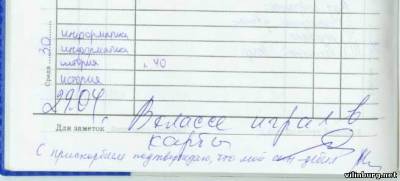 информатика
информатика
история , 40
история
Среда 30
29.04. В классе играл в
Для заметок карты
С прискорбием подтверждаю, что мой сын - дебил
vilinburg.net